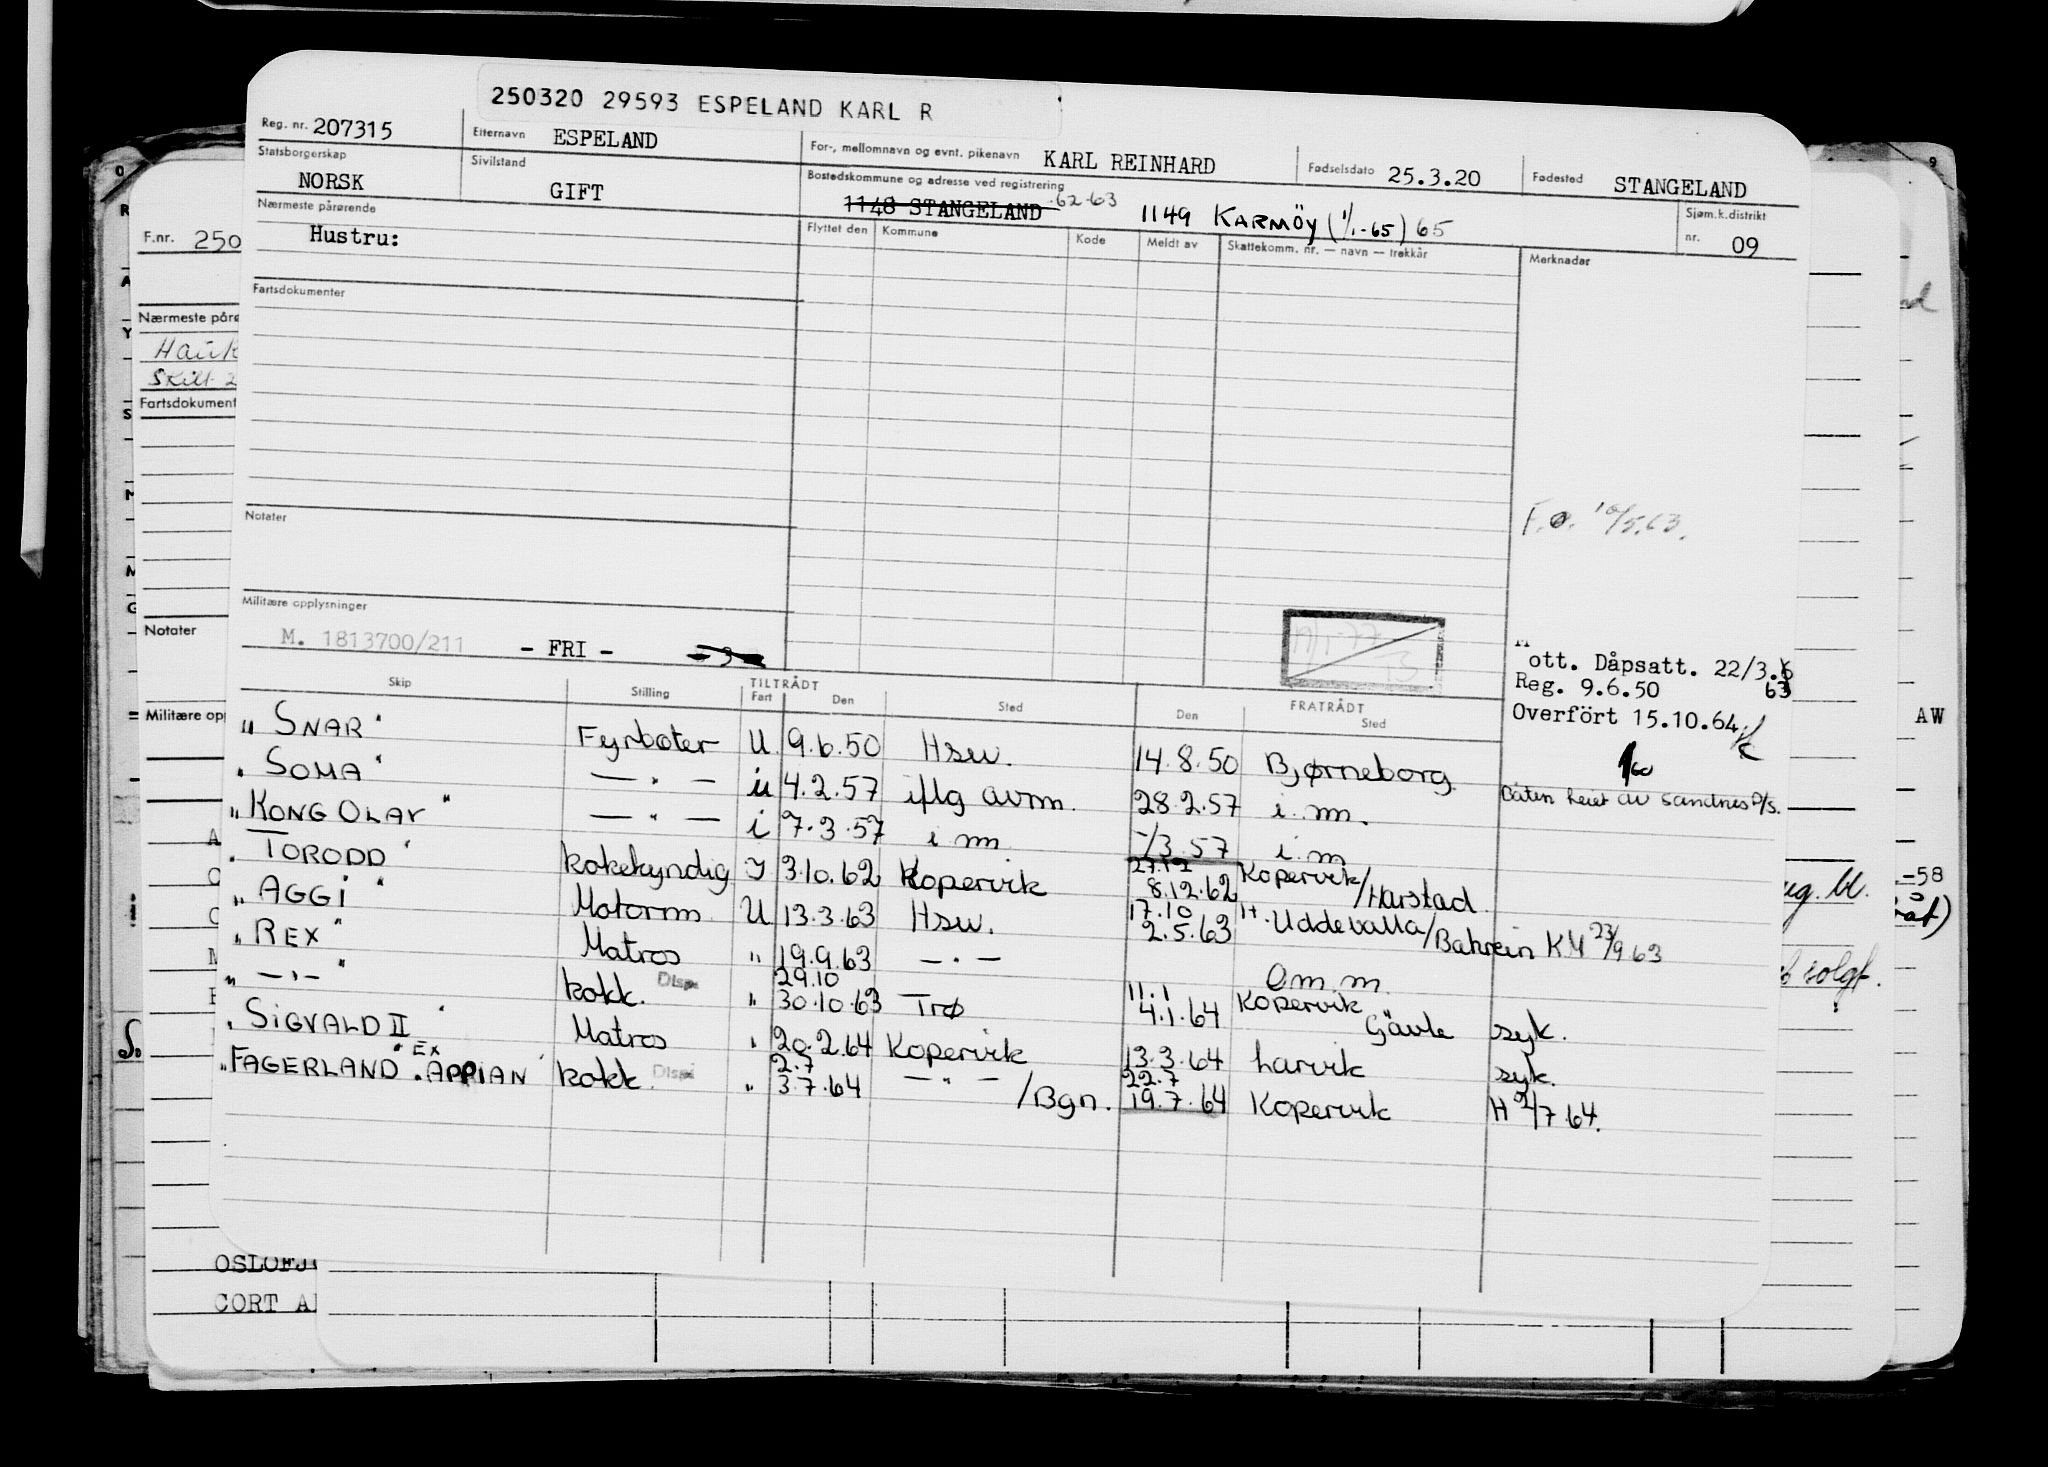 250320 29593 ESPELAND KARL R
Reg. nr. 207315 Etternavn ESPELAND For-, mellomnavn og evnt. pikenavn KARL REINHARD Fødselsdato 25.3.20 Fødested STANGELAND
Statsborgerskap NORSK Sivilstand GIFT Bostedskommune og adresse ved registrering 1148 STANGELAND 62-63 1149 KARMÖY (1/1-65) 65 Sjøm.k.distrikt nr. 09
Nærmeste pårørende Flyttet den Kommune Kode Meldt av Skattekomm. nr. — navn — trekkår Merknader
Hustru:
Fartsdokumenter
F.nr. 250
Nærmeste påre
Hauk
Skilt 2
Fartsdokument
Notater
F.o. 10/5.63.
Militære opplysninger
M. 1813700/211 - FRI -
Notater
ott. Dåpsatt. 22/3.
63
Reg. 9.6.50
Overfört 15.10.64
Skip Stilling TILTRÅDT Fart Den Sted Den FRATRÅDT Sted
Militære opp
AW
"SNAR" Fyrbøter U 9.6.50 Hsw. 14.8.50 Bjørneborg
"SOMA" — " — u 4.2.57 iflg avm. 28.2.57 i. m. Båten leiet av Sandnes D/S.
"KONG OLAV" — " — i 7.3.57 i m -/3 57 i. m
"TORODD" kokekyndig I 3.10.62 Kopervik 27.12 8.12.62 Kopervik/Harstad
"AGGI" Motorm. U 13.3.63 Hsw. 17.10 2.5.63 H. Uddevalla/Bahrein KM 23/9 63
"REX" Matros " 19.9.63 — " — Om.m.
" — " — " kokk. Disp. " 29.10 30.10.63 Trø 11.1 4.1.64 Kopervik Gävle syk.
"SIGVALD II" Matros " 20.2.64 Kopervik 13.3.64 Larvik syk.
"FAGERLAND" EX "APPIAN" kokk. Disp. " 2.7 3.7.64 — " — /Bgn. 22.7 19.7.64 Kopervik H /7.64.
-58
ug. bl.
solgt.
OSLOFJ
CORT A